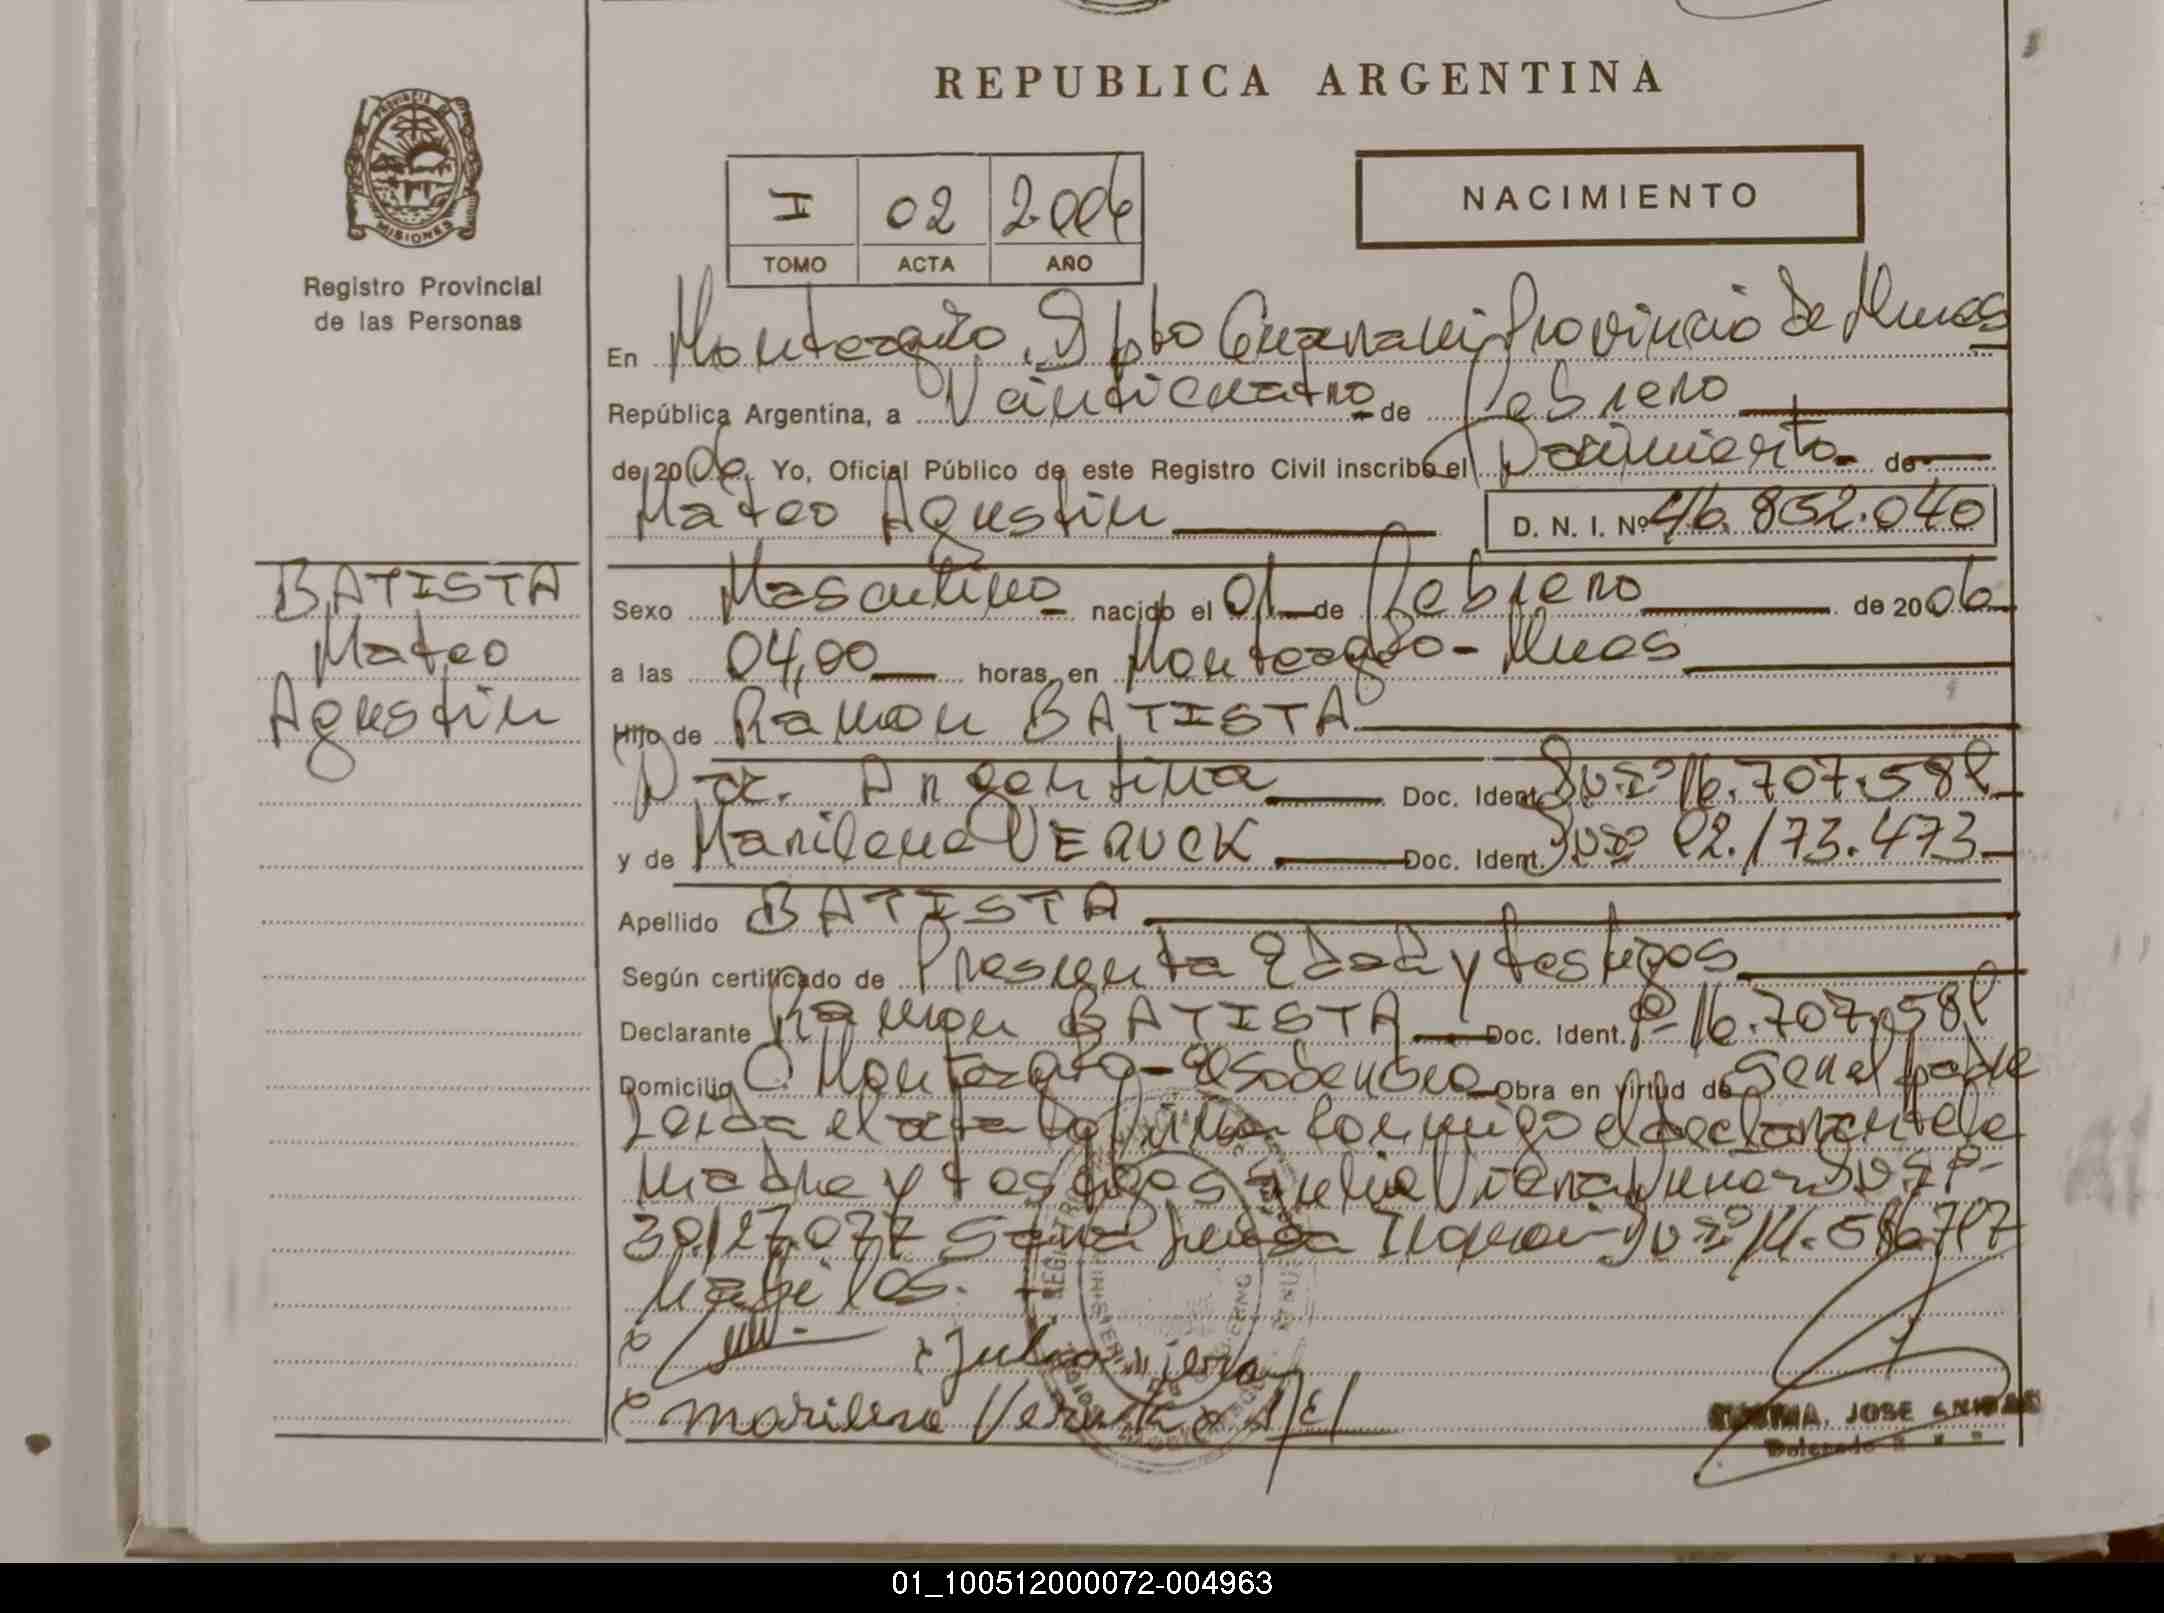 REPUBLICA ARGENTINA
PROVINCIA DE MISIONES
Registro Provincial
de las Personas
I 02 2006
TOMO ACTA AÑO
NACIMIENTO
En Monteagudo, Dpto Guarani, Provincia de Mnes
República Argentina, a Veinticuatro de Febrero
de 2006. Yo, Oficial Público de este Registro Civil inscribo el Nacimiento de
Mateo Agustin D. N. I. Nº 46.852.040
BATISTA
Mateo
Agustin
Sexo Masculino nacido el 01 de Febrero de 2006
a las 04,00 horas, en Monteagudo - Mnes
Hijo de Ramon BATISTA
Nac. Argentina Doc. Ident. 16.707.581
y de Marilene VERUCK Doc. Ident. 92.173.473
Apellido BATISTA
Según certificado de Presunta Edad y testigos
Declarante Ramon BATISTA Doc. Ident. 16.707.581
Domicilio Monteagudo - Obra en virtud de ser el padre
Leida el acta la firman conmigo el declarante la
madre y testigos Julia Viera
30.127.077
x Julia Viera
Marilene Veruck
JOSE
01_100512000072-004963